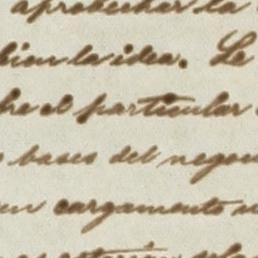 aprobechar la
bien la idea. Le
bre el particular
bases del negoci
un cargamento